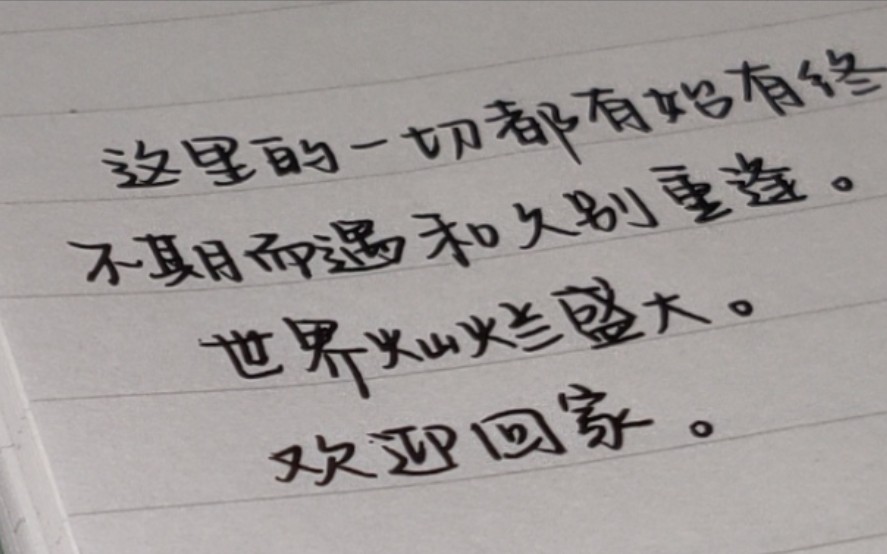 这里的一切都有始有终
不期而遇和久别重逢。
世界灿烂盛大。
欢迎回家。